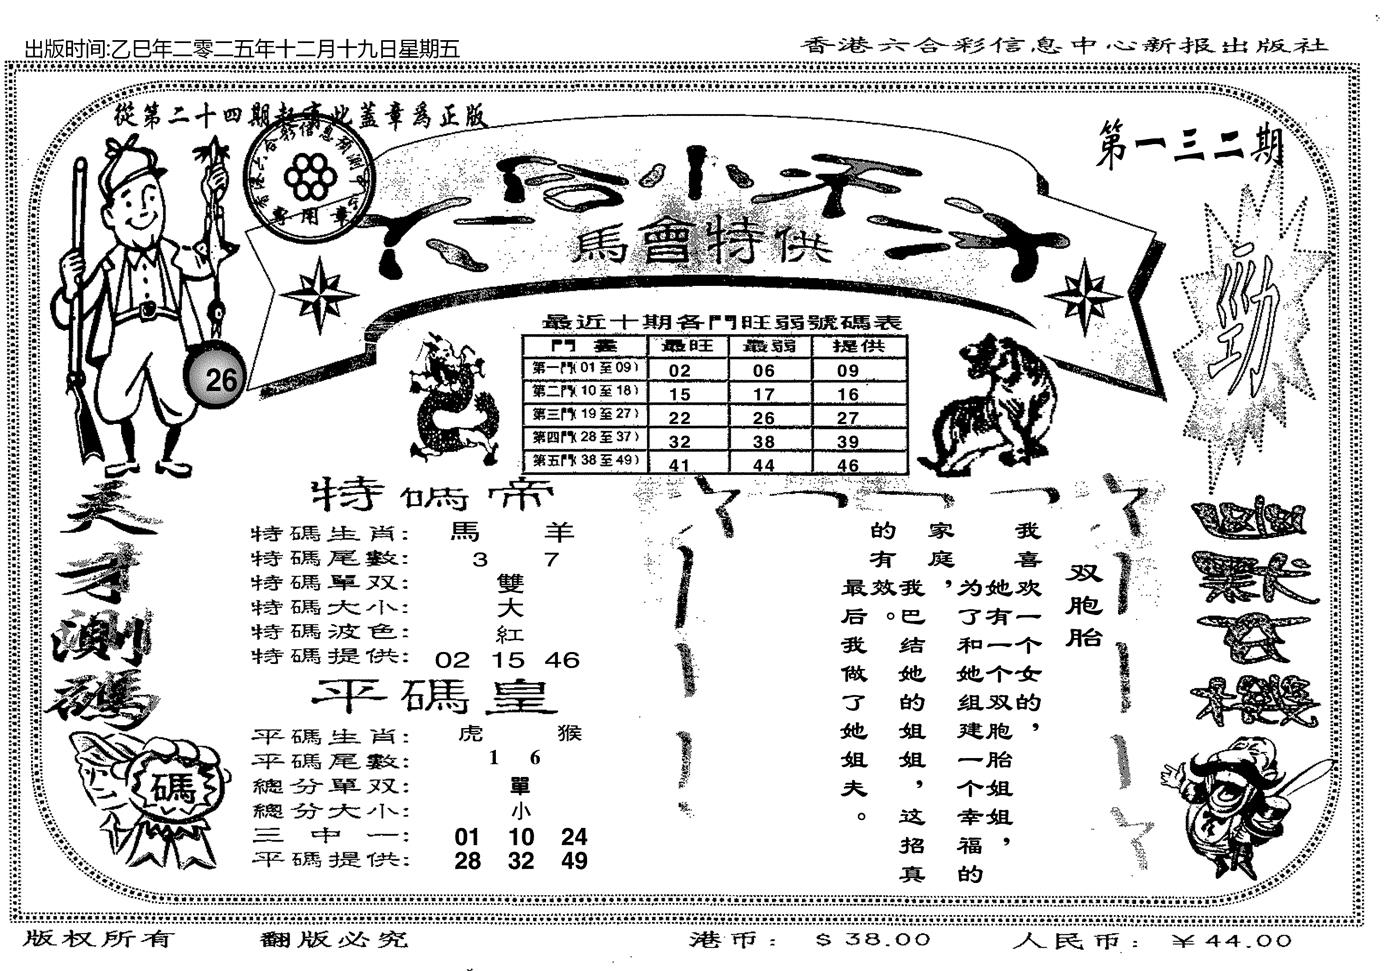 出版时间:乙巳年二零二五年十二月十九日星期五
香港六合彩信息中心新报出版社
從第二十四期起有此蓋章為正版
香港六合彩信息預測中心
專用章
第一三二期
六合小不一天
馬會特供
26
勁
最近十期各門旺弱號碼表
門 畫 最旺 最弱 提供
第一門(01至09) 02 06 09
第二門(10至18) 15 17 16
第三門(19至27) 22 26 27
第四門(28至37) 32 38 39
第五門(38至49) 41 44 46
天才測碼
碼
特碼帝
特碼生肖: 馬 羊
特碼尾數: 3 7
特碼單双: 雙
特碼大小: 大
特碼波色: 紅
特碼提供: 02 15 46
平碼皇
平碼生肖: 虎 猴
平碼尾數: 1 6
總分單双: 單
總分大小: 小
三中一: 01 10 24
平碼提供: 28 32 49
双胞胎
我喜欢一个女的,
她有一个双胞胎姐姐,
为了和她组建一个幸福的
家庭,
我巴结她的姐姐,这招真
的有效。
最后我做了她姐夫。
版权所有 翻版必究
港币: $38.00
人民币: ￥44.00